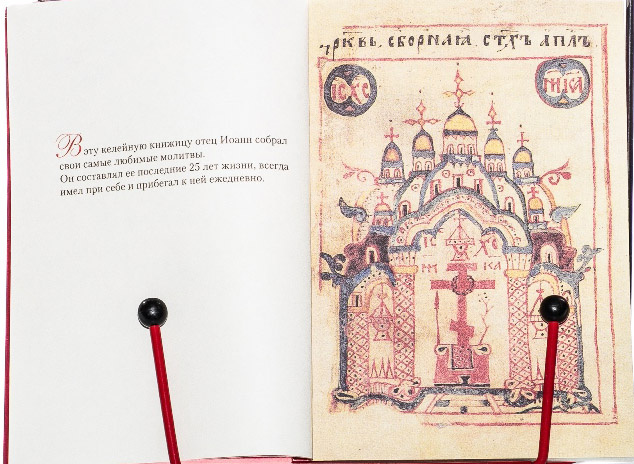 В эту келейную книжицу отец Иоанн собрал
свои самые любимые молитвы.
Он составлял ее последние 25 лет жизни, всегда
имел при себе и прибегал к ней ежедневно.
СБОРНАѦ
IC XC
НИКА
IC XC
НИ КА